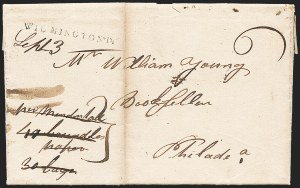 WILMINGTON
Sept 3
Mr William Young
Bookseller
Philada
per
10 bundles
paper
30 bags